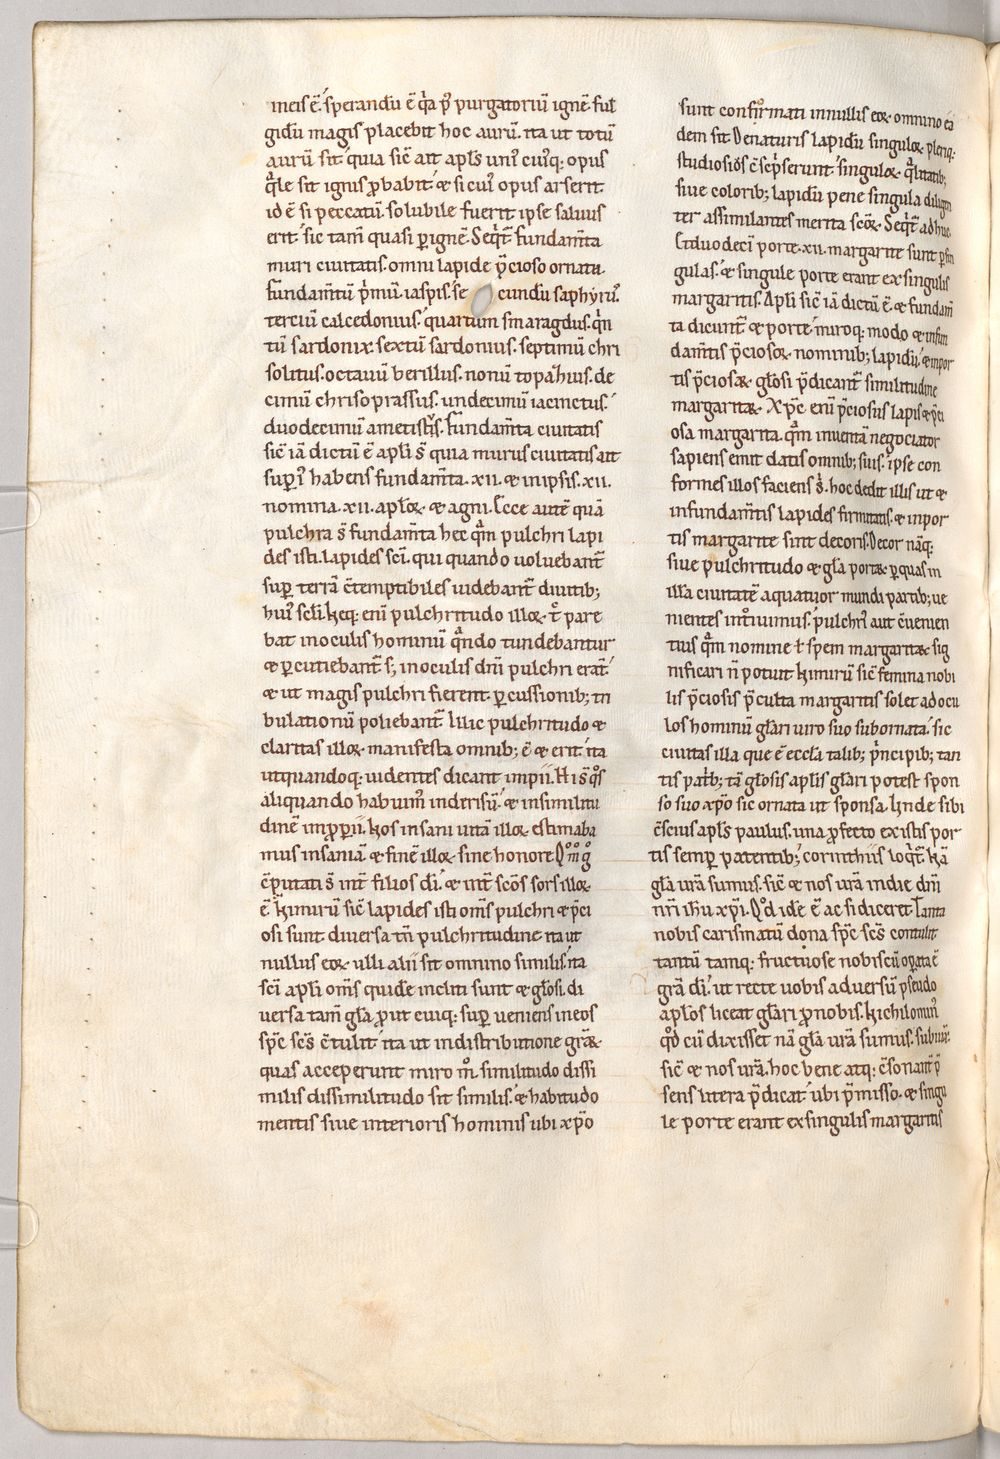 ineis ē. sperandū ē q̇a p̄ purgatoriū ignē ful
gidū magis placebit hoc aurū. ita ut totū
aurū sit quia sic̄ ait apl̄s uni᷒ cui᷒q: opus
q̄le sit ignis ꝓbabit. ⁊ si cui᷒ opus arserit
id ē si peccatū solubile fuerit ipse saluus
erit. sic tam̄ quasi ꝑ ignē. Seqt̄ fundam̄ta
muri ciuitatis. omni lapide p̄cioso ornata.
fundam̄tū p̄mū. iaspis. se cundū saphyru᷒.
terciū calcedonius. quartum smaragdus. qn̄
tū sardonix. sextū sardonius. septimū chri
solitus. octauū berillus. nonū topazius. de
cimū chrisoprassus. undecimū iacinctus.
duodecimū ametist᷒s. Fundam̄ta ciuitatis
sic̄ iā dictū ē apl̄i s̄ quia murus ciuitatis ait
suꝑi᷒ habens fundam̄ta .xii. ⁊ in ipsis .xii.
nomina .xii. aplōꝝ ⁊ agni. Ecce autē quā
pulchra s̄ fundam̄ta hec qm̄ pulchri lapi
des isti. lapides sc̄i. qui quando uoluebant̄
suꝑ terrā c̄temptibiles uidebant̄ diuitib;
hui᷒ sc̄li. Neq: eni᷒ pulchritudo illoꝝ tc̄ pare
bat in oculis hominū q̄ndo tundebantur
⁊ ꝑcutiebant̄ s; in oculis dn̄i pulchri erāt
⁊ ut magis pulchri fierent ꝑcussionib; tri
bulationū poliebant̄. Illic pulchritudo ⁊
claritas illoꝝ manifesta omnib; ē ⁊ erit. ita
ut quandoq: uidentes dicant impii. Hi s̄ qͦs
aliquando habuim᷒ in derisū. ⁊ in similitu
dinē improꝑii. Nos insani uitā illoꝝ estimaba
mus insaniā ⁊ finē illoꝝ sine honore. Qͦmͦgͦ
c̄putati s̄ int̄ filios dī. ⁊ int̄ sc̄os sors illoꝝ
ē. Nimirū sic̄ lapides isti om̄s pulchri ⁊ p̄ci
osi sunt diuersa tn̄ pulchritudine ita ut
nullus eoꝝ ulli alii sit omnino similis. ita
sc̄i apl̄i om̄s quidē incliti sunt ⁊ gl̄osi. di
uersa tam̄ gl̄a ꝓut cuiq: suꝑueniens in eos
sp̄c sc̄s c̄tulit. ita ut in distributione grāꝝ
quas acceperunt miro mͦ. similitudo dissi
milis dissimilitudo sit similis. ⁊ habitudo
mentis siue interioris hominis ubi xp̄o
sunt confirmati in nullis eoꝝ omnino eā
dem sit. De naturis lapidū singuloꝝ pleriq:
studiosiōs c̄sc̄p̄serunt. singuloꝝ q̄litatib;
siue colorib; lapidū pene singula diligen
ter assimilantes merita sc̄oꝝ. Seqt̄ adhuc.
Et duodeci᷒ porte .xii. margarite sunt ꝑ sin
gulas. ⁊ singule porte erant ex singulis
margaritis. Apl̄i sic̄ iā dictū ē. ⁊ fundam̄
ta dicunt̄ ⁊ porte. miroq: modo ⁊ in fun
dam̄tis p̄ciosoꝝ nominib; lapidū. ⁊ in por
tis p̄ciosaꝝ gl̄osi p̄dicant̄ similitudine
margaritaꝝ. Xp̄c eni᷒ p̄ciosus lapis ⁊ p̄ci
osa margarita. qm̄ inuentā negociator
sapiens emit datis omnib; suis. ipse con
formes illos faciens s̄. hoc dedit illis ut ⁊
in fundam̄tis lapides firmitatis ⁊ in por
tis margarite sint decoris. Decor nāq:
siue pulchritudo ⁊ gl̄a portaꝝ ꝑ quas in
illā ciuitatē a quatuor mundi partib; ue
nientes int̄uimus. pulchri᷒ aut c̄uenien
tius qm̄ nomine ł spem margaritaꝝ sig
nificari n̄ potuit. Nimirū sic̄ femina nobi
lis p̄ciosis p̄culta margaritis solet ad ocu
los hominū gl̄ari uiro suo subornata. sic
ciuitas illa que ē eccl̄a talib; p̄ncipib; tan
tis pat̄b; tā gl̄osis apl̄is gl̄ari potest spon
so suo xp̄o sic ornata ut sponsa. Unde sibi
c̄scius apl̄s paulus. una ꝓfecto ex istis por
tis semꝑ patentib; corinthiis loqt̄. Nā
gl̄a ur̄a sumus. sic̄ ⁊ nos ur̄a in die dn̄i
nr̄i ih̄u xp̄i. Qͦd idē ē ac si diceret. Tanta
nobis carismatū dona sp̄c sc̄s contulit
tantū tamq: fructuose nobiscū oꝑata ē
gr̄a dī. ut recte uobis aduersū pseudo
apl̄os liceat gl̄ari ꝓ nobis. Nichilomin᷒
qͦd cū dixisset nā gl̄a ur̄a sumus. subiūx̄.
sic̄ ⁊ nos ur̄a. hoc bene atq: c̄sonant̄ p̄
sens litera p̄dicat ubi p̄misso. ⁊ singu
le porte erant ex singulis margaritis